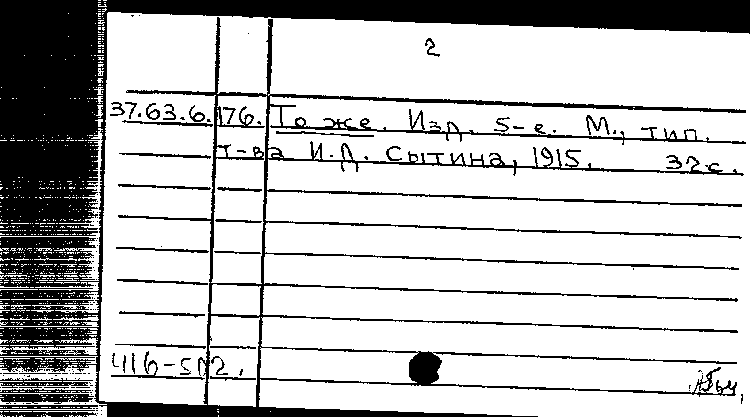 2
37.63.6.176. То же. Изд. 5-е. М., тип.
т-ва И.Д. Сытина, 1915. 32с.